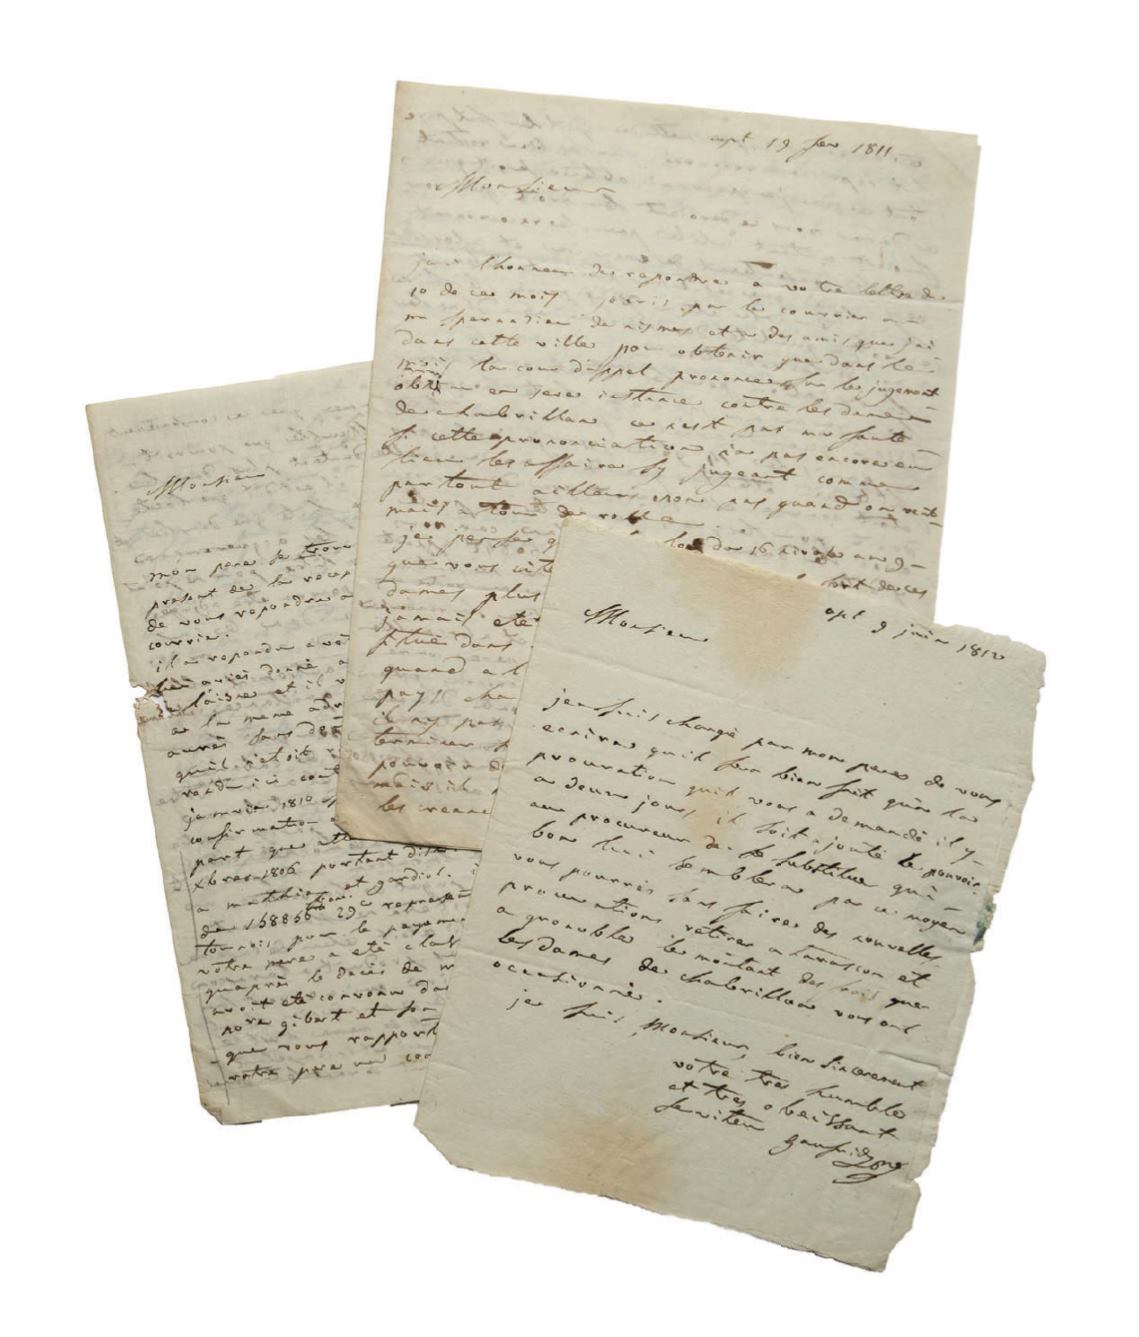 apt 19 fev 1811
Monsieur
jai l'honneur des repondre a votre lettre du
10 de ce mois jecris par le courrier a
mr sperandieu de nismes et a des amis que jai
dans cette ville pour obtenir que dans le
mois la cour dappel prononce sur le jugement
obtenu en 1ere instance contre les dames
de chabrillan ce nest pas ma faute
si cette prononciation na pas encore eu
lieu les affaires sy jugent comme
partout ailleurs non pas quand on veut
mais tour de rolle
jai pensé q la loi du 16 nivose an 9
que vous cité sort de ces
dames plus
jamais eté
situé dans
quand a l
pays cha
il ny pas
terminer
pouvoir d
mais il
les revenu
Monsieur
mon pere se trouv
present de la recep
de vous repondre
courrier.
il a repondu a vot
lui aviés donné
de laisne et il v
a la meme adr
aurés sans d
quil etoit
rendu ici cont
janvier 1810
confirmation
part que
xbre 1806 portant
a mathieu et gardiol.
de 158856 29c represen
tournois pour le payeme
votre pere a eté
quaprès le decès de m
avoit eté convenu da
pere gibert et son
que vous rapport
votre pere
apt 9 juin 1812
Monsieur
je suis chargé par mon pere de vous
ecrire quil sera bien fait qua la
procuration quil vous a demandé il y
a deux jours, il soit ajouté le pouvoir
au procureur de se substituer qui
bon lui semblera par ce moyen
vous pourrés sans faire des nouvelles
procurations retirer a tarascon et
a grenoble le montant des frais que
les dames de chabrillan vous ont
occasionnés.
je suis, Monsieur, bien sincerement
votre tres humble
et tres obeissant
serviteur gaufridy